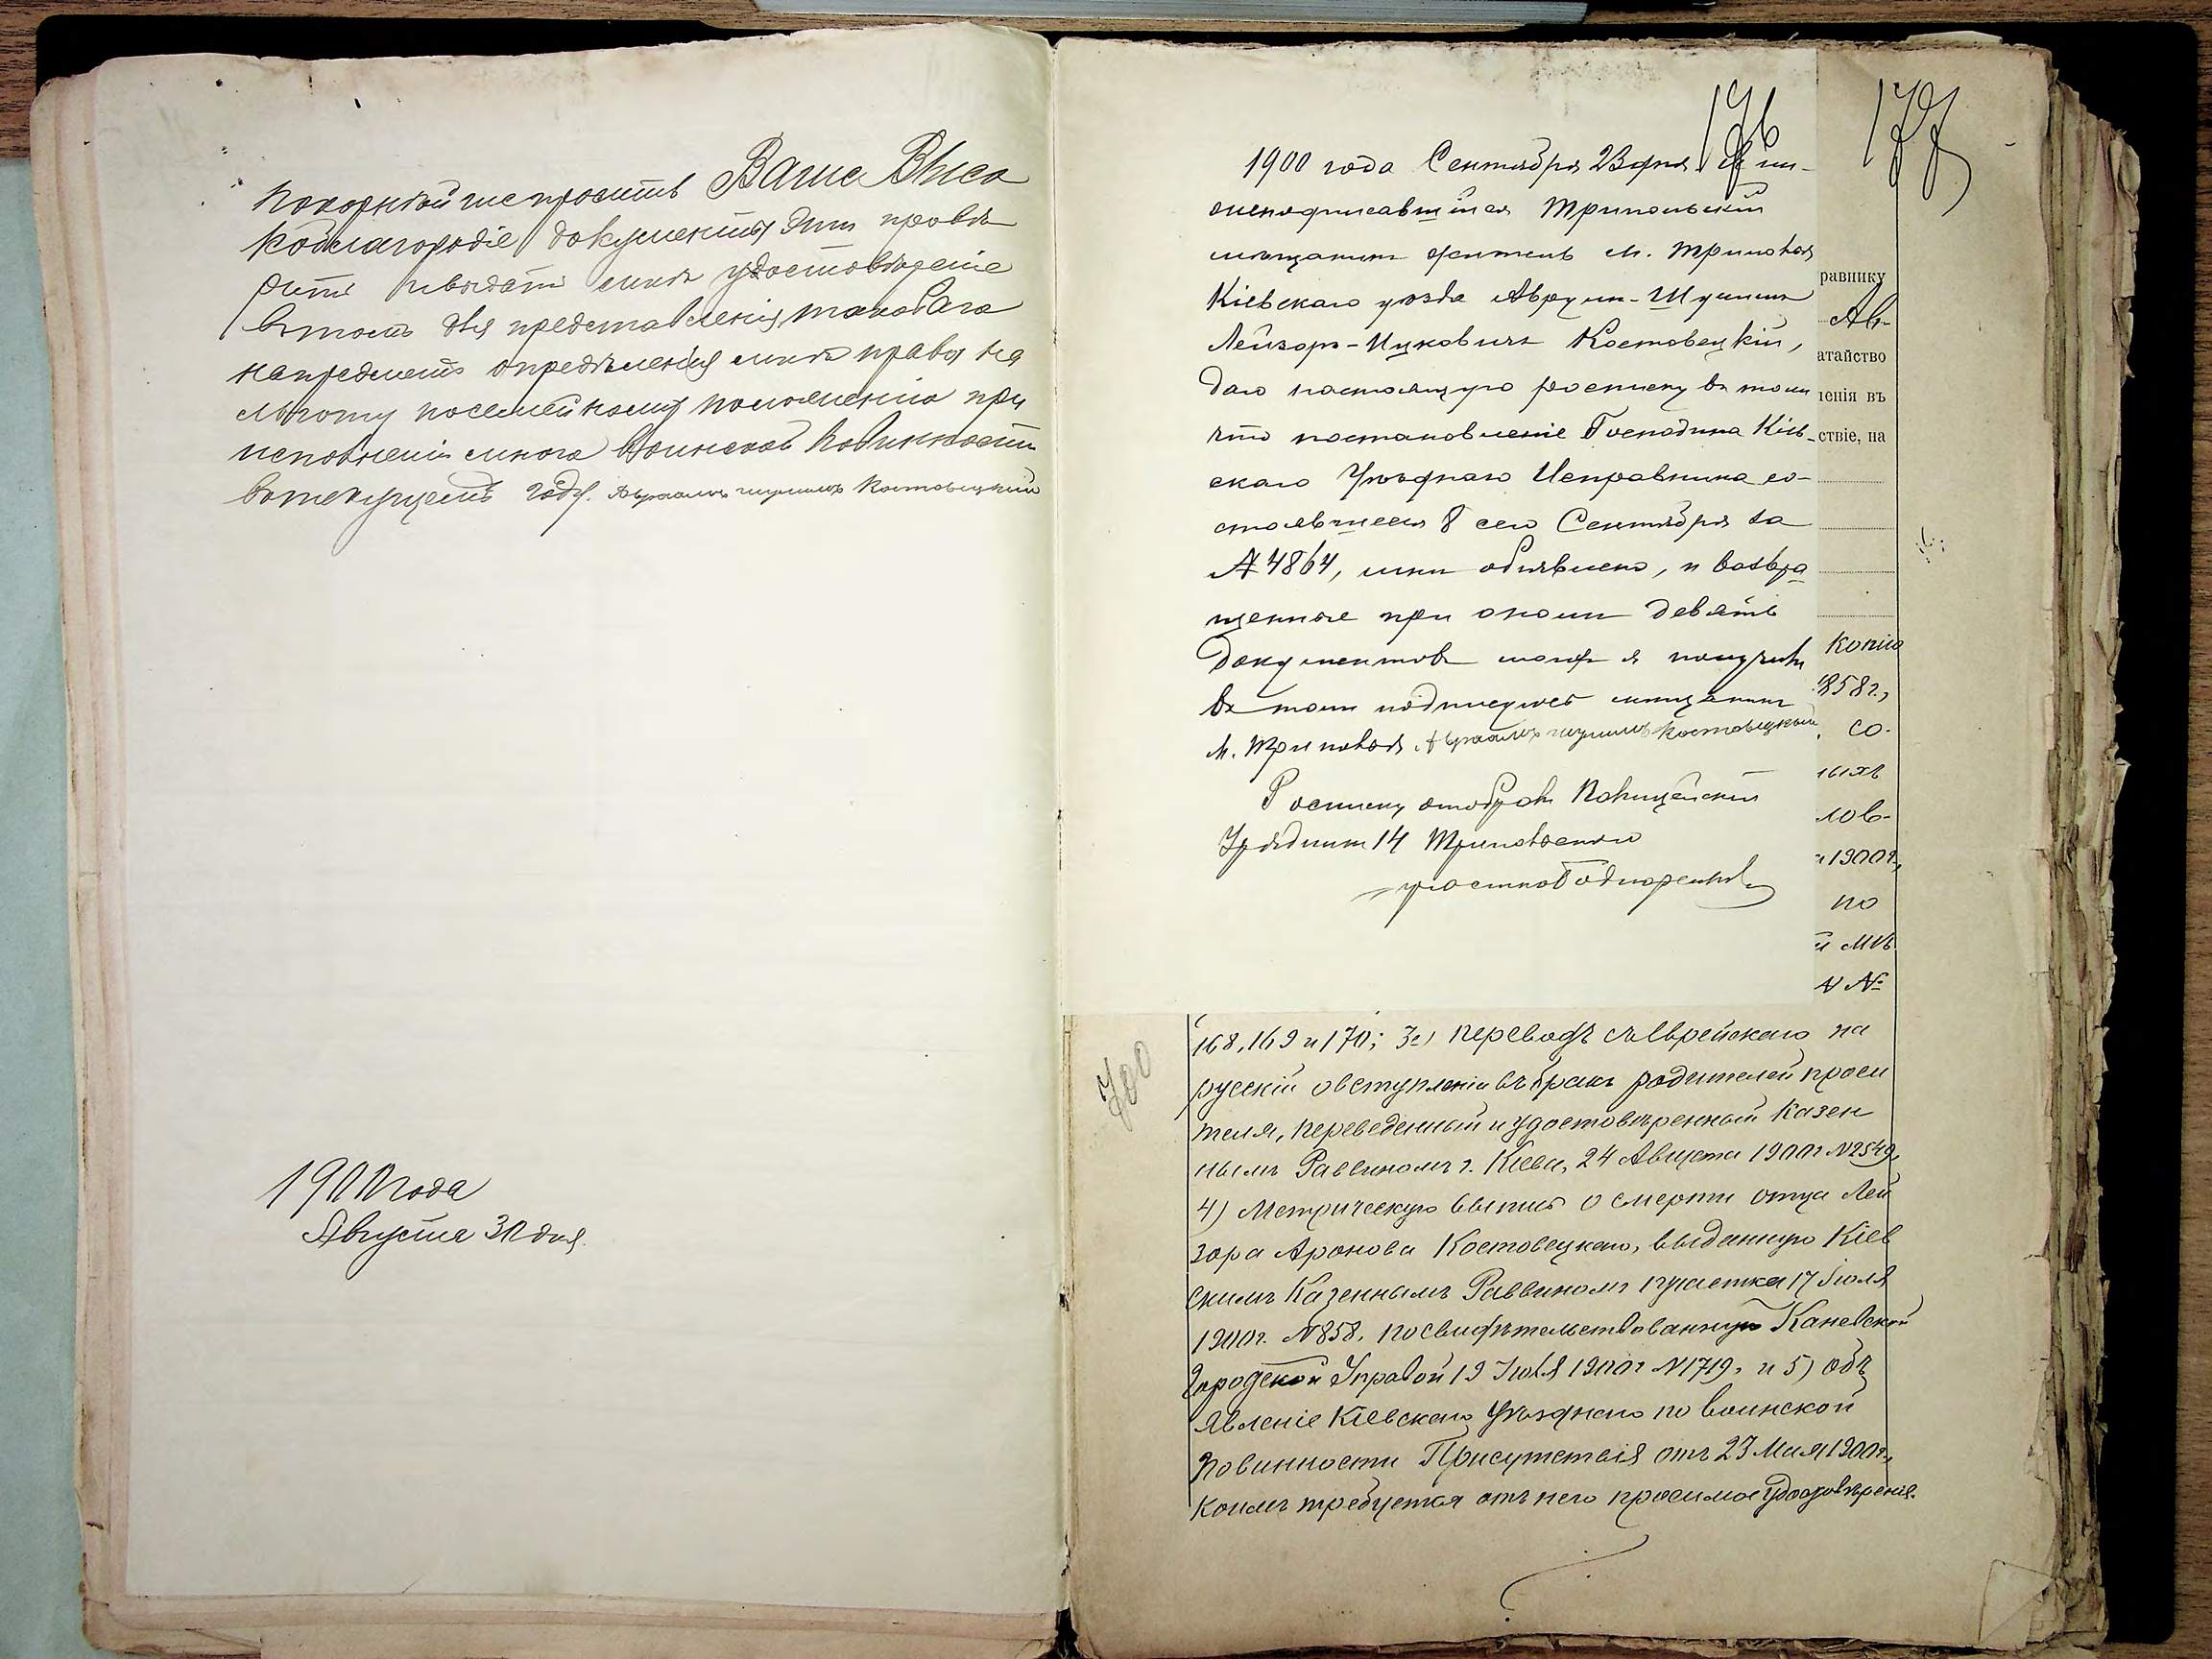 покорнѣйше просить Ваше Высо
коблагородіе документы эти провѣ
рить и выдать мнѣ удостовѣреніе
въ томъ для представленія таковаго
на предметъ опредѣленія мнѣ права на
льготу по семейному положенію при
исполненіи мною воинской повинности
въ текущемъ году. Авраамъ шулимъ Костовецкий
1900 года
Августа 30 дня.
176
177
1900 года Сентября 23 дня Я ни-
жеподписавшійся Трипольскій
мѣщанинъ житель м. Триполья
Кіевскаго уѣзда Аврум-Шулим
Лейзоръ-Ицковичъ Костовецкій,
даю настоящую росписку въ томъ
что постановленіе Господина Кіев-
скаго Уѣзднаго Исправника со-
стоявшееся 8 сего Сентября за
№ 4864, мнѣ объявлено, и возвра
щенные при ономъ девять
документовъ я получилъ
въ томъ подписуюсь мѣщанинъ
м. Триполья Авраамъ шулимъ Костовецкий
Росписку отобралъ Полицейскій
Урядникъ 14 Трипольскаго
участка
равнику
Ав-
атайство
ленія въ
ствіе, на
копію
1858 г.,
со-
ныхъ
лов-
1900 г.,
по
й мѣ
№
700
168, 169 и 170; 3) переводъ съ Еврейскаго на
русскій о вступленіи въ бракъ родителей проси
теля, переведенный и удостовѣренный Казен
нымъ Раввиномъ г. Кіева, 24 Августа 1900 г. № 2549,
4) Метрическую выпись о смерти отца Лей
зора Аронова Костовецкаго, выданную Кіев
скимъ Казеннымъ Раввиномъ 1 участка 17 Іюля
1900 г. № 858. посвидѣтельствованную Каневской
Городской Управой 19 Іюля 1900 г. № 1719, и 5) объ
явленіе Кіевскаго Уѣзднаго по воинской
повинности Присутствія отъ 23 Мая 1900 г.,
коимъ требуется отъ него просимое удостовѣреніе.